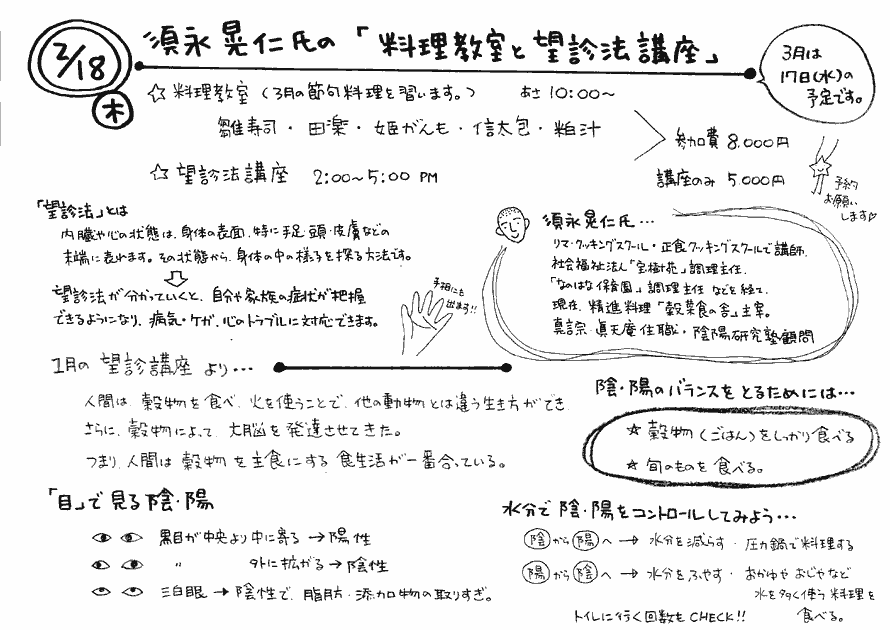 2/18
木
須永晃仁氏の「料理教室と望診法講座」
3月は
17日(水)の
予定です。
☆ 料理教室 (3月の節句料理を習います。) あさ10:00〜
雛寿司・田楽・姫がんも・信太包・粕汁
参加費 8,000円
☆ 望診法講座 2:00〜5:00 PM
講座のみ 5,000円
予約
お願い
します♡
「望診法」とは
内臓や心の状態は、身体の表面、特に手足・頭・皮膚などの
末端に表れます。その状態から、身体の中の様子を探る方法です。
望診法が分かっていくと、自分や家族の症状が把握
できるようになり、病気・ケガ、心のトラブルに対応できます。
手相にも
出ます!!
須永晃仁氏…
リマ・クッキングスクール・正食クッキングスクールで講師、
社会福祉法人「宝樹苑」調理主任、
「なのはな保育園」調理主任などを経て、
現在、精進料理「穀菜食の舎」主宰。
真言宗・眞王庵住職・陰陽研究塾顧問
1月の 望診講座 より…
人間は、穀物を食べ、火を使うことで、他の動物とは違う生き方ができ
さらに、穀物によって、大脳を発達させてきた。
つまり、人間は穀物を主食にする食生活が一番合っている。
陰・陽のバランスをとるためには…
☆ 穀物(ごはん)をしっかり食べる
☆ 旬のものを食べる。
「目」で見る陰・陽
黒目が中央より中に寄る → 陽性
〃 外に拡がる → 陰性
三白眼 → 陰性で、脂肪・添加物の取りすぎ。
水分で陰・陽をコントロールしてみよう…
陰から陽へ → 水分を減らす・圧力鍋で料理する
陽から陰へ → 水分をふやす・おかゆやおじやなど
水を多く使う料理を
食べる。
トイレに行く回数をCHECK!!